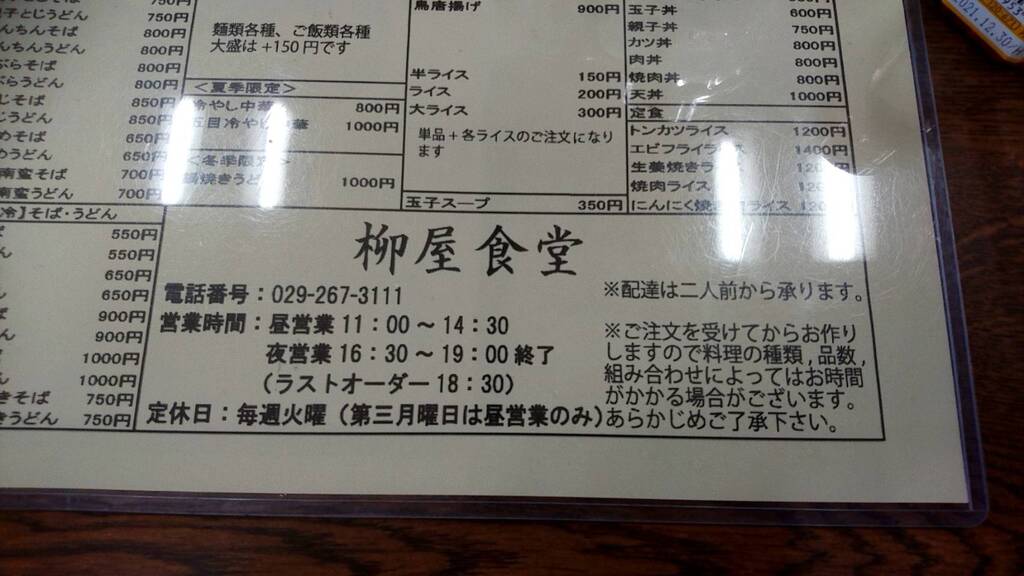 750円
とじうどん 750円
んちんそば 800円
んちんうどん 800円
ぷらそば 800円
ぷらうどん 800円
じそば 850円
じうどん 850円
めそば 650円
めうどん 650円
南蛮そば 700円
南蛮うどん 700円
冷】そば・うどん
550円
550円
650円
650円
900円
900円
1000円
1000円
きそば 750円
きうどん 750円
麺類各種、ご飯類各種
大盛は+150円です
<夏季限定>
冷やし中華 800円
五目冷やし中華 1000円
<冬季限定>
鍋焼きうどん 1000円
鳥唐揚げ 900円
半ライス 150円
ライス 200円
大ライス 300円
単品+各ライスのご注文になり
ます
玉子スープ 350円
玉子丼 600円
親子丼 750円
カツ丼 800円
肉丼 800円
焼肉丼 800円
天丼 1000円
定食
トンカツライス 1200円
エビフライライス 1400円
生姜焼きラ
焼肉ライス
にんにく焼 ライス
柳屋食堂
電話番号:029-267-3111
営業時間:昼営業11:00~14:30
夜営業16:30~19:00終了
(ラストオーダー18:30)
定休日:毎週火曜(第三月曜日は昼営業のみ)
※配達は二人前から承ります。
※ご注文を受けてからお作り
しますので料理の種類,品数,
組み合わせによってはお時間
がかかる場合がございます。
あらかじめご了承下さい。
2021.12.30